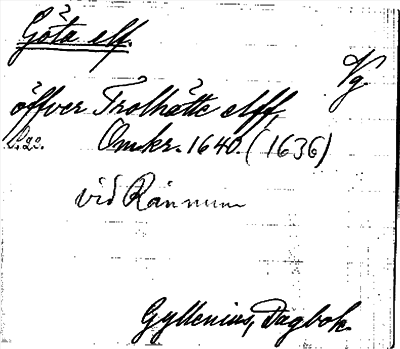 Göta elf.
Vg.
öffver Trolhätte elff,
Omkr. 1640. (1636)
vid Rånnum
Gyllenius, Dagbok.